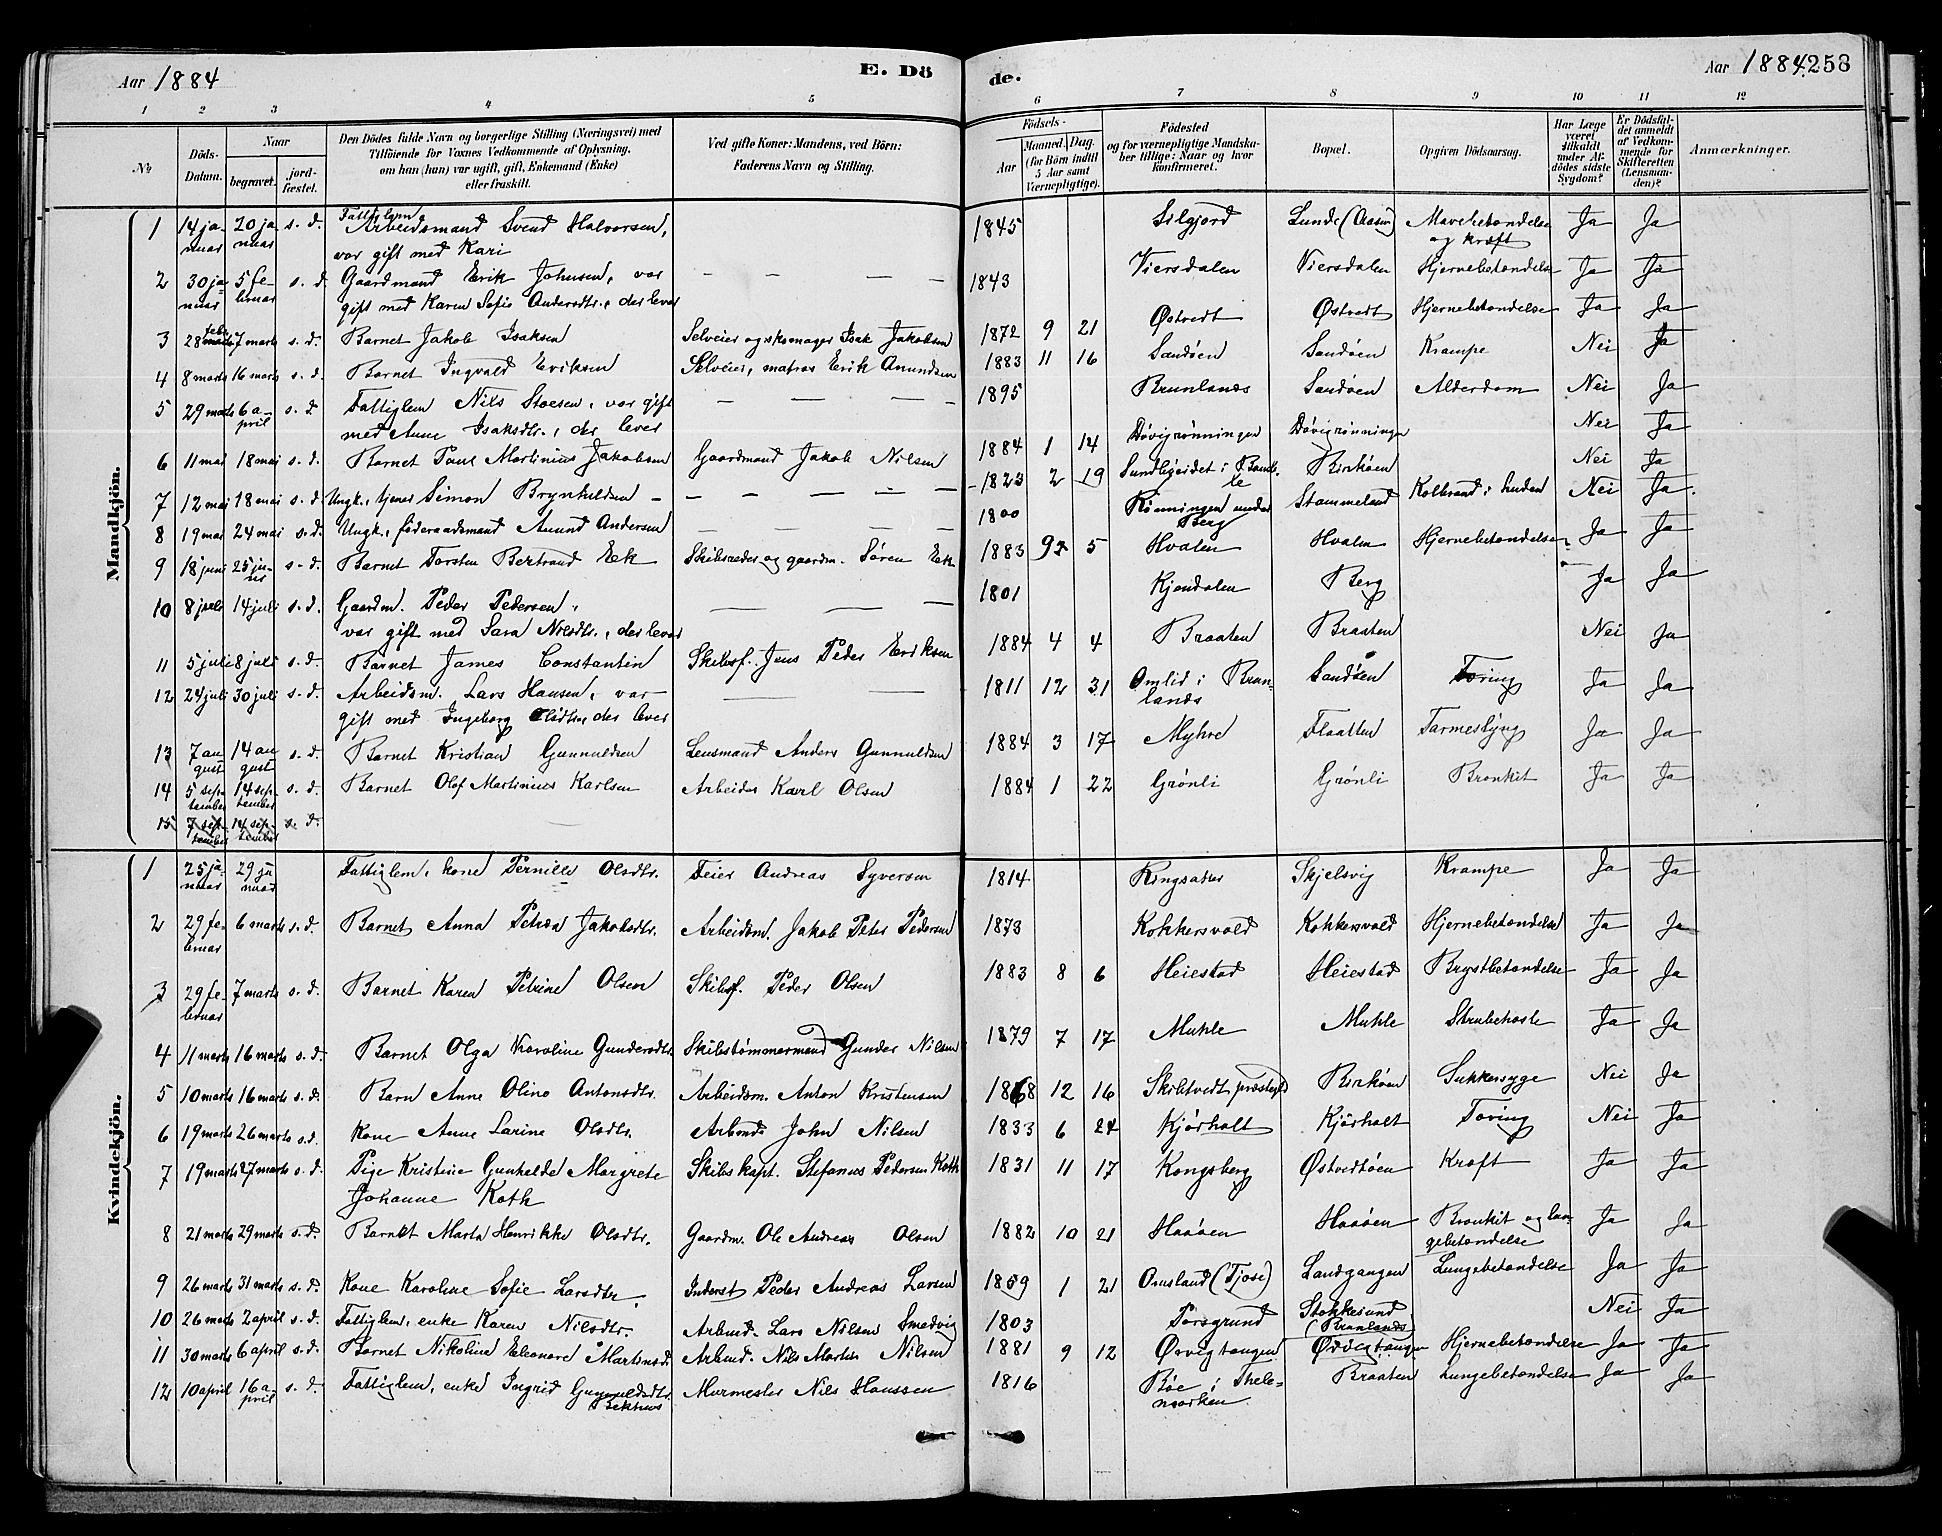 Aar 1884 E. Dö de. Aar 1884. 258
1 2 3 4 5 6 7 8 9 10 11 12
No
Döds-Datum.
Naar
begravet. jord-fæstet.
Den Dödes fulde Navn og borgerlige Stilling (Næringsvei) med
Tilföiende for Voxnes Vedkommende af Oplysning,
om han (hun) var ugift, gift, Enkemand (Enke)
eller fraskilt.
Ved gifte Koner: Mandens, ved Börn:
Faderens Navn og Stilling.
Födsels-
Aar Maaned. Dag.
(for Börn indtil
5 Aar samt
Værnepligtige).
Födested
og for værnepligtige Mandska-
ber tillige: Naar og hvor
konfirmeret.
Bopæl.
Opgiven Dödsaarsag.
Har Læge
været
tilkaldt
under Af-
dödes sidste
Sygdom?
Er Dödsfal-
det anmeldt
af Vedkom-
mende for
Skifteretten
(Lensman-
den)?
Anmærkninger.
Mandkjön.
1 14 januar 20 januar s. d. Fattiglem Arbeidsmand Svend Halvorsen, 1845 Silgjord Lunde Mavebetændelse og kræft Ja Ja
var gift med Kari
2 30 januar 5 februar s. d. Gaardmand Erik Johnsen, var — — — — 1843 Viersdalen Viersdalen Hjernebetændelse Ja Ja
gift med Karen Sofie Andersdtr., der lever
3 28 febr 7 marts s. d. Barnet Jakob Isaksen Selveier og skomager Isak Jakobsen 1872 9 21 Østvedt Østvedt Hjernebetændelse Ja Ja
4 8 marts 16 marts s. d. Barnet Ingvald Eriksen Selveier, matros Erik Amundsen 1883 11 16 Sandøen Sandøen Krampe Nei Ja
5 29 marts 6 april s. d. Fattiglem Nils Stoesen, var gift — — — — 1895 Brunlanæs Sandøen Alderdom Nei Ja
med Anne Isaksdtr., der lever
6 11 mai 18 mai s. d. Barnet Paul Martinius Jakobsen Gaardmand Jakob Nilsen 1884 1 14 Døvigrønningen Døvigrønningen Nei Ja
7 12 mai 18 mai s. d. Ungk., tjener Simon Brynhildsen — — — — — 1823 2 19 Sundbyeidet i Bamble Birkøen Nei Ja
8 19 mai 24 mai s. d. Ungk., føderaadsmand Amund Andersen — — — — 1800 Rønningen under Berg Stammeland Kolbrand i huden Nei Ja.
9 18 juni 25 juni s. d. Barnet Torsten Bertrand Eek Skibsreder og gaardm. Søren Eek 1883 9 5 Hvalen Hvalen Hjernebetændelse Ja Ja
10 8 juli 14 juli s. d. Gaardm. Peder Pedersen, — — — 1801 Kjendalen Berg Ja Ja
var gift med Sara Nilsdtr., der lever
11 5 juli 8 juli s. d. Barnet James Constantin Skibsf. Jens Peder Eriksen 1884 4 4 Braaten Braaten Nei Ja
12 24 juli 30 juli s. d. Arbeidsm. Lars Hansen, var — — 1811 12 31 Omlid i Brunlanæs Sandøen Tæring Ja Ja
gift med Ingeborg Olsdtr., der lever
13 7 august 14 august s. d. Barnet Kristian Gunnuldsen Lensmand Anders Gunnuldsen 1884 3 17 Myhre Flaatten Tarmeslyng Ja Ja
14 5 september 14 september s. d. Barnet Olof Martinius Karlsen Arbeider Karl Olsen 1884 1 22 Grønli Grønli Bronkit Ja Ja
15 7 september 14 september s. d.
Kvindekjön.
1 25 januar 29 januar Fattiglem, kone Pernille Olsdtr. Feier Andreas Syversen 1814 Ringsaker Skjelsvig Krampe Ja Ja
2 29 februar 6 marts s. d. Barnet Anna Petrea Jakobsdtr. Arbeidsm. Jakob Peter Pedersen 1873 Kokkersvold Kokkersvold Hjernebetændelse Ja Ja
3 29 februar 7 marts s. d. Barnet Karen Petrine Olsen Skibsf. Peder Olsen 1883 8 6 Heiestad Heiestad Brystbetændelse Ja Ja
4 11 marts 16 marts s. d. Barnet Olga Karoline Gundersdtr. Skibstømmermand Gunder Nilsen 1879 7 17 Muhle Muhle Strubehoste Ja Ja
5 10 marts 16 marts s. d. Barn Anne Oline Antonsdtr. Arbeidsm. Anton Kristensen 1868 12 16 Skibtvedt præstegd Birkøen Sukkersyge Nei Ja
6 19 marts 26 marts s. d. Kone Anne Larine Olsdtr. Arbmd. John Nilsen 1833 6 24 Kjørholt Kjørholt Tæring Nei Ja
7 19 marts 27 marts s. d. Pige Kristine Gunhilde Margrete Skibskapt. Stefanus Pedersen Koth 1831 11 17 Kongsberg Østvedtøen Kræft Ja Ja
Johanne Koth
8 21 marts 29 marts s. d. Barnet Marta Henrikke Olsdtr. Gaardm. Ole Andreas Olsen 1882 10 21 Haaøen Haaøen Bronkit og lungebetændelse Ja Ja
9 26 marts 31 marts s. d. Kone Karoline Sofie Larsdtr. Inderst Peder Andreas Larsen 1859 1 21 Omsland (Tjøse) Landgangen Lungebetændelse Ja Ja
10 26 marts 2 april s. d. Fattiglem, enke Karen Nilsdtr. Arbmd. Lars Nilsen Smedvig 1803 Porsgrund Stokkesund (Brunlanæs) Nei Ja
11 30 marts 6 april s. d. Barnet Nikoline Eleonore Martinsd. Arbmd. Nils Martin Nilsen 1881 9 12 Ørvigtangen Ørvigtangen Hjernebetændelse Ja Ja
12 10 april 16 april s. d. Fattiglem, enke Ingrid Gunnuldsdtr. Murmester Nils Hanssen 1816 Bøe i Thelemarken Braaten Lungebetændelse Ja Ja